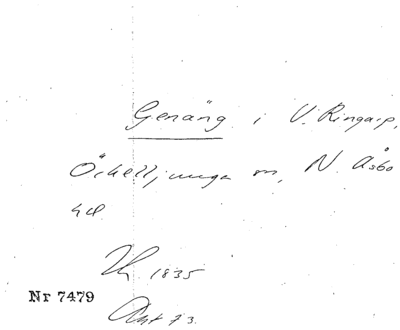 Genäng i V. Ringarp,
Örkelljunga sn, N. Åsbo
hd.
1835
Nr 7479
Akt 73.